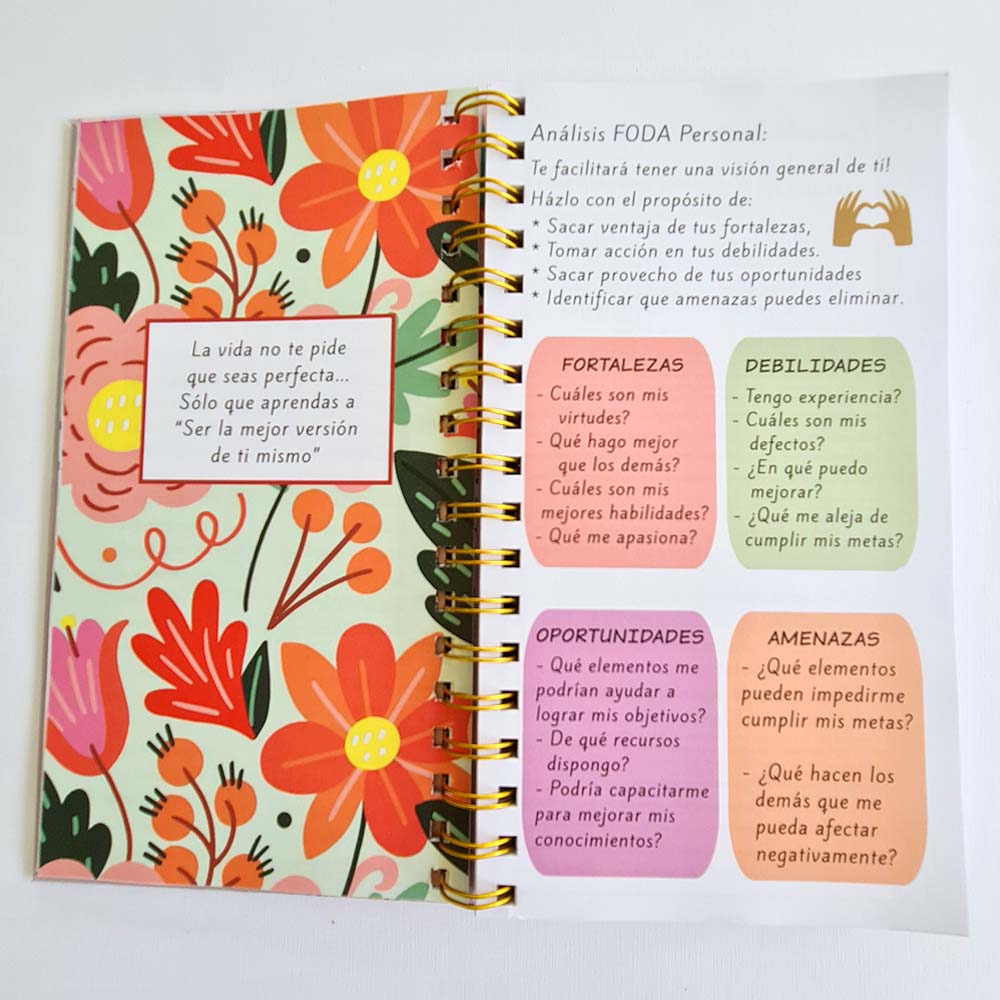 La vida no te pide
que seas perfecta...
Sólo que aprendas a
“Ser la mejor versión
de ti mismo”
Análisis FODA Personal:
Te facilitará tener una visión general de ti!
Házlo con el propósito de:
* Sacar ventaja de tus fortalezas,
* Tomar acción en tus debilidades.
* Sacar provecho de tus oportunidades
* Identificar que amenazas puedes eliminar.
FORTALEZAS
- Cuáles son mis
virtudes?
- Qué hago mejor
que los demás?
- Cuáles son mis
mejores habilidades?
- Qué me apasiona?
DEBILIDADES
- Tengo experiencia?
- Cuáles son mis
defectos?
- ¿En qué puedo
mejorar?
- ¿Qué me aleja de
cumplir mis metas?
OPORTUNIDADES
- Qué elementos me
podrían ayudar a
lograr mis objetivos?
- De qué recursos
dispongo?
- Podría capacitarme
para mejorar mis
conocimientos?
AMENAZAS
- ¿Qué elementos
pueden impedirme
cumplir mis metas?
- ¿Qué hacen los
demás que me
pueda afectar
negativamente?